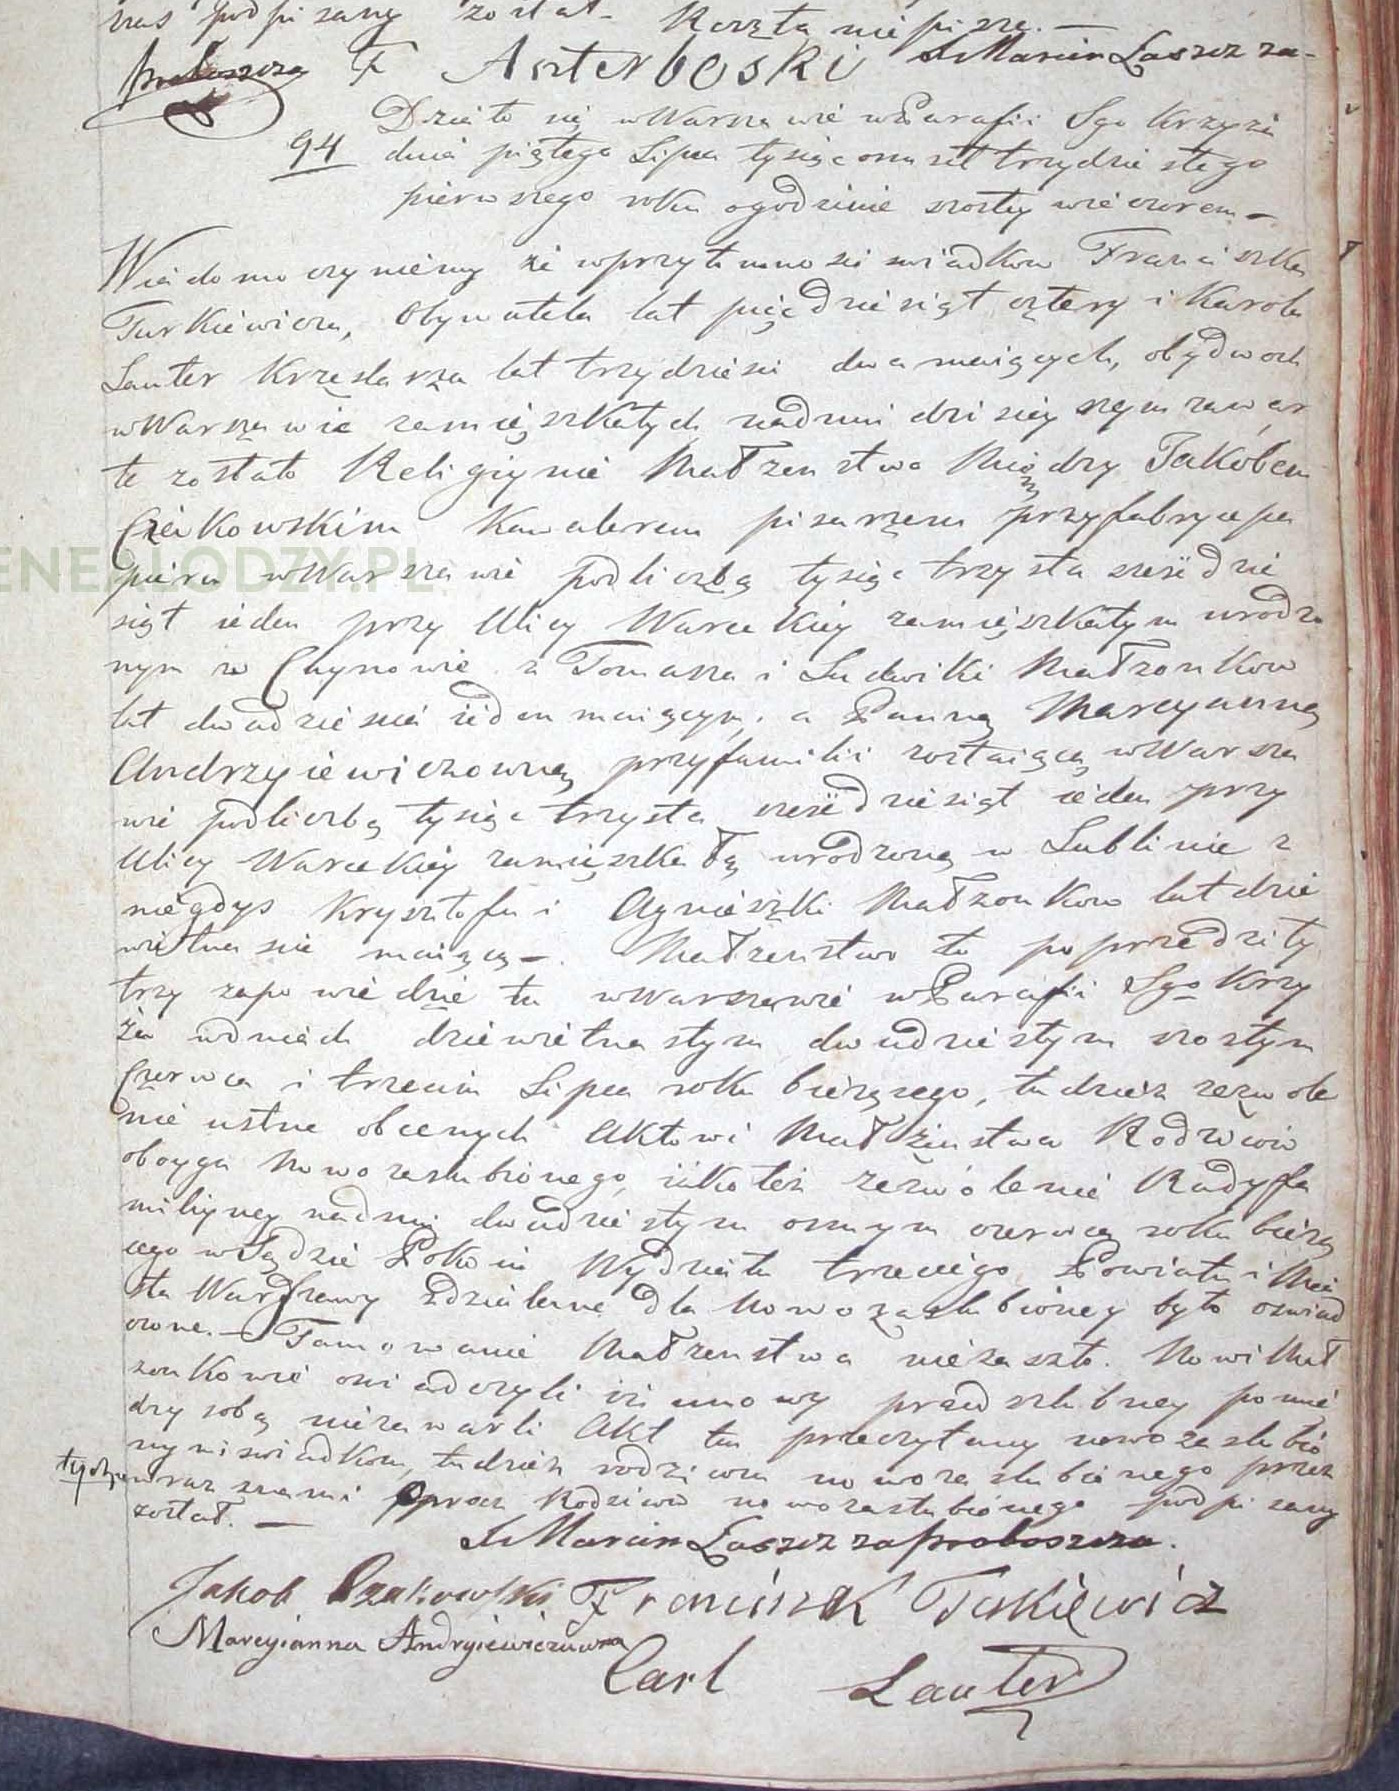 nas podpisany został. Reszta nie pisze. —
proboszcza F Asterboski X Marcin Laszcz za-
94
Działo się w Warszawie w Parafii Sgo Krzyża
dnia piątego Lipca tysiąc osmset trzydziestego
pierwszego roku o godzinie szosty wieczorem —
Wiadomo czyniemy że w przytomności swiadków Franciszka
Turkiewicza, Obywatela lat pięćdziesiąt cztery i Karola
Lauter Krzeslarza lat trzydzieści dwa maiących, obydwoch
w Warszawie zamięszkałych nadniu dzisieyszym zawar
te zostało Religiynie Małżenstwo Między Jakóbem
Czaikowskim Kawalerem pisarzem przy fabryce pa
pieru w Warszawie podliczbą tysiąc trzysta sześćdzie
siąt ieden przy Ulicy Wareckiey zamięszkałym urodzo
nym w Chynowie z Tomasza i Ludwiki Małzonkow
lat dwadziescia ieden maiącym, a Panną Marcyanną
Andrzyiewiczowną przy familii zostaiącą w Warsza
wie podliczbą tysiąc trzysta sześćdziesiąt ieden przy
Ulicy Wareckiey zamięszkałą urodzoną w Lublinie z
niegdys Krysztofa i Agnieszki Małzonkow lat dzie
więtnascie maiącą —. Małżenstwo to poprzedziły
trzy zapowiedzie tu w Warszawie w Parafii Sgo Krzy
ża w dniach dziewiętnastym dwudziestym szostym
Czerwca i trzecim Lipca roku bieżącego, tudzież zezwole
nie ustne obecnych Aktowi Małżeństwa Rodziców
oboyga Nowozaslubionego, iako też zezwolenie Rady fa
miliyney nadniu dwudziestym osmym czerwca roku bieżą
cego w Sądzie Pokoiu Wydziału trzeciego Powiatu i Mia
sta Warszawy zdzielane dla Nowozaslubioney było oswiad
czone. — Tamowanie Małżenstwa niezaszło. Nowi Mał
zonkowie oswiadczyli iż umowy przedslubney pomię
dzy sobą niezawarli Akt ten przeczytany nowozaslubio
nym i swiadkom, tudzież rodzicom nowozaslubionego przez
tychże wraz znami Oprocz Rodziców nowozaslubionego podpisany
został. —
X Marcin Laszcz za proboszcza.
Jakob Czaikowski Franciszek Turkiewicz
Marcyianna Andryiewiczuwna
Carl Lauter
GENEALODZY.PL